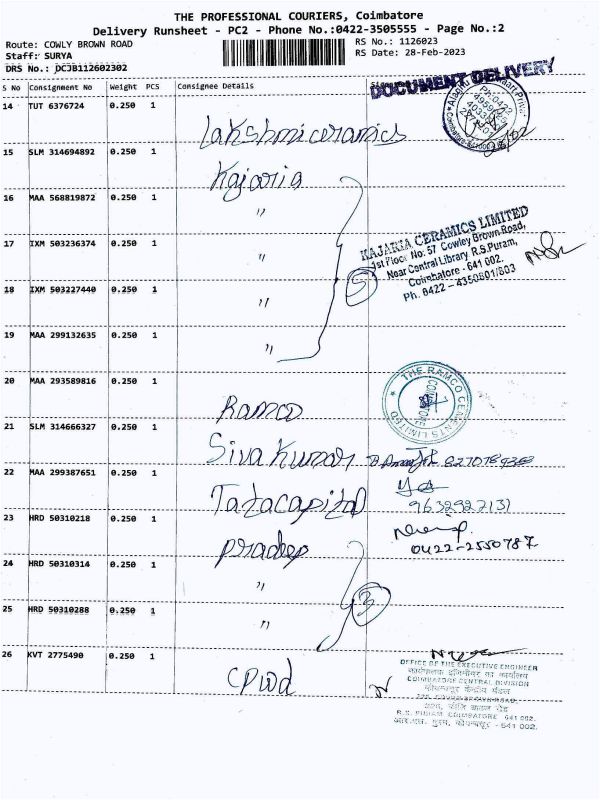 THE PROFESSIONAL COURIERS, Coimbatore
Delivery Runsheet - PC2 - Phone No.:0422-3505555 - Page No.:2
Route: COWLY BROWN ROAD
RS No.: 1126023
Staff: SURYA
RS Date: 28-Feb-2023
DRS No.: DCJB112602302
S No Consignment No Weight PCS Consignee Details
DOCUMENT DELIVERY
14 TUT 6376724 0.250 1
Lakshmi ceramics
15 SLM 314694892 0.250 1
Kajaria
16 MAA 568819872 0.250 1
"
17 IXM 503236374 0.250 1
"
KAJARIA CERAMICS LIMITED
1st Floor No. 57 Cowley Brown Road,
Near Central Library R.S.Puram,
Coimbatore - 641 002.
Ph. 0422 - 4350801/803
18 IXM 503227440 0.250 1
"
5
19 MAA 299132635 0.250 1
"
20 MAA 293589816 0.250 1
Ramco
THE RAMCO CEMENTS LIMITED
21 SLM 314666327 0.250 1
Siva Kumar
22 MAA 299387651 0.250 1
Tatacapital
9632927131
23 HRD 50310218 0.250 1
pradeep
0422-2550787
24 HRD 50310314 0.250 1
"
3
25 HRD 50310288 0.250 1
"
26 KVT 2775490 0.250 1
CPWD
OFFICE OF THE EXECUTIVE ENGINEER
कार्यपालक इंजीनियर का कार्यालय
COIMBATORE CENTRAL DIVISION
कोयम्बत्तूर केन्द्रीय मंडल
R.S. PURAM COIMBATORE 641 002.